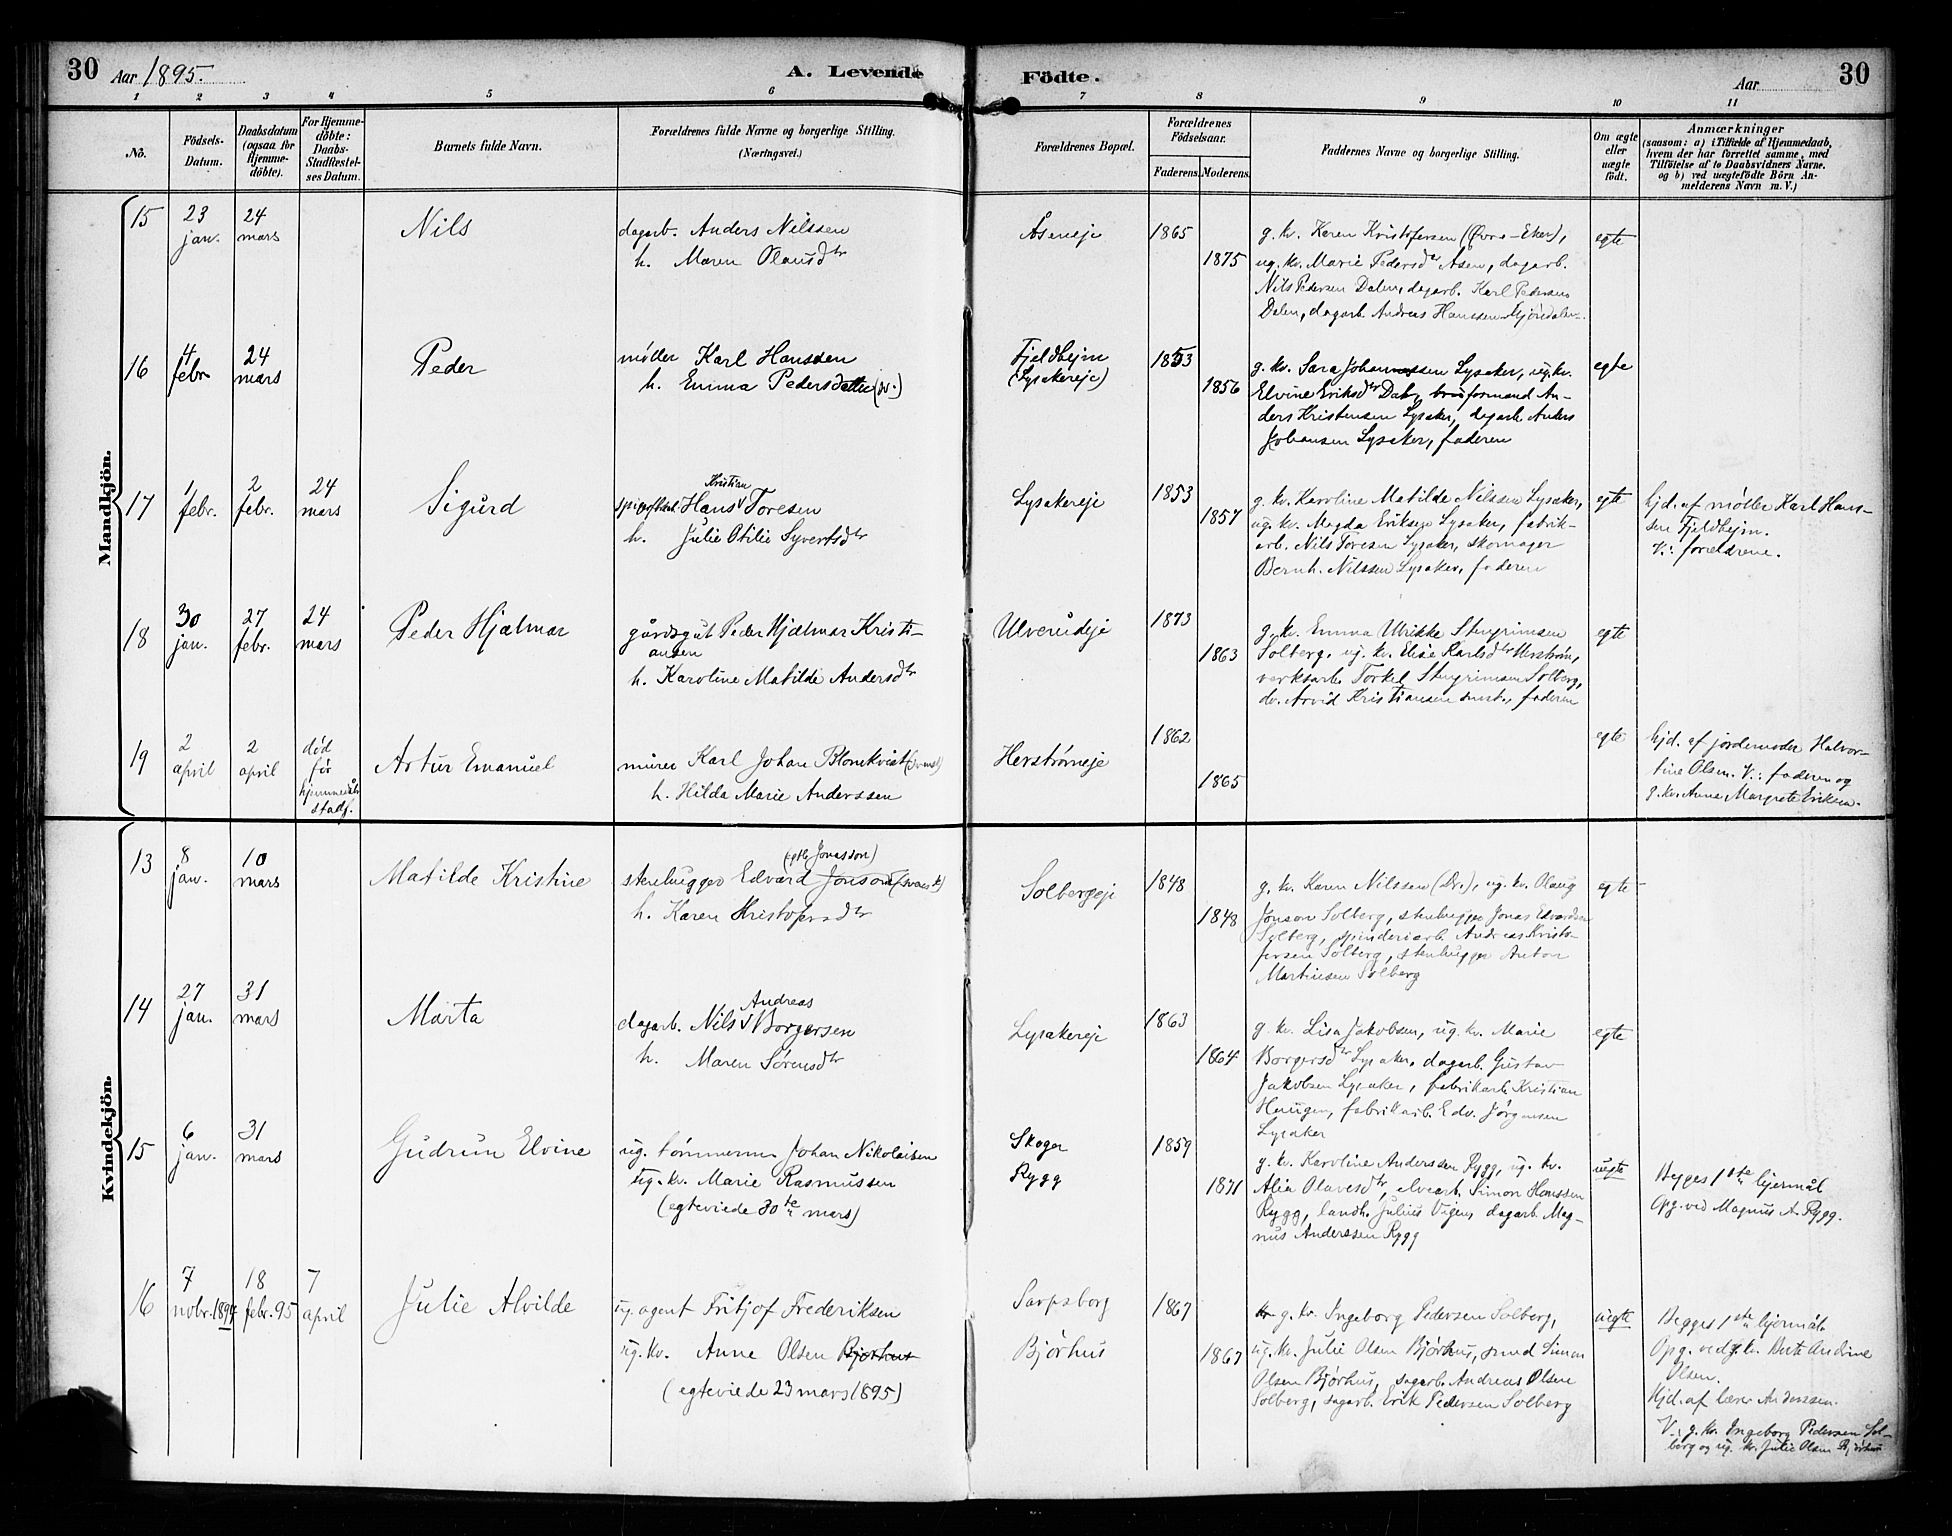 30 Aar 1895. A. Levende Födte. Aar 30
1 2 3 4 5 6 7 8 9 10 11
No.
Födsels-
Datum.
Daabsdatum
(ogsaa for
Hjemme-
döbte).
For Hjemme-
döbte:
Daabs-
Stadfæstel-
ses Datum.
Barnets fulde Navn.
Forældrenes fulde Navne og borgerlige Stilling.
(Næringsvei.)
Forældrenes Bopæl.
Forældrenes
Födselsaar.
Faderens. Moderens.
Faddernes Navne og borgerlige Stilling.
Om ægte
eller
uægte
födt.
Anmærkninger
(saasom: a) i Tilfælde af Hjemmedaab,
hvem der har forrettet samme, med
Tilföielse af to Daabsvidners Navne.
og b) ved uægtefödte Börn An-
melderens Navn m. V.)
Mandkjön.
15
23
jan.
24
mars
Nils
dagarb. Anders Nilssen
h. Maren Olausdtr
Åseneje
1865
1875
g. kv. Karen Kristofersen (Øvre-Eker),
ug. kv. Marie Pedersdtr Åsen, dagarb.
Nils Pedersen Dalen, dagarb. Karl Pedersen
Dalen, dagarb. Andreas Hanssen Mjøndalen.
egte
16
4
febr
24
mars
Peder
møller Karl Hanssen
h. Emma Pedersdatter (dr.)
Fjeldhejm
(Lysakereje)
1853
1856
g. kv. Sara Johannessen Lysaker, ug. kv.
Elvine Eriksdtr Dal, formand An-
ders Kristensen Lysaker, dagarb. Anders
Johansen Lysaker, faderen
egte
17
1
febr.
2
febr.
24
mars
Sigurd
Kristian
Hans Toresen
h. Julie Otilie Syvertsdtr
Lysakereje
1853
1857
g. kv. Karoline Matilde Nilssen Lysaker,
ug. kv. Magda Eriksen Lysaker, fabrik-
arb. Nils Toresen Lysaker, skomager
Bernh. Nilssen Lysaker, faderen
egte
hjd. af møller Karl Hans-
sen Fjeldhejm.
V.: forældrene.
18
30
jan.
27
febr.
24
mars
Peder Hjalmar
gårdsgut Peder Hjalmar Kristi-
ansen
h. Karoline Matilde Andersdtr
Ulverudeje
1873
1863
g. kv. Emma Ulrikke Stengrimsen
Solberg, ug. kv. Elise Karlsdtr Herstrøm,
verksarb. Torkel Stengrimsen Solberg,
do. Arvid Kristiansen smst., faderen
egte
19
2
april
2
april
død
før
hjemmedåb
stadf.
Artur Emanuel
murer Karl Johan Blomkvist (svensk)
h. Hilda Marie Anderssen
Herstrømeje
1862
1865
egte
hjd. af jordemoder Halvor-
tine Olsen. V.: faderen og
g. kv. Anne Margrete Eriksen.
Kvindekjön.
13
8
jan.
10
mars
Matilde Kristine
(gtb Jonasson)
stenhugger Edvard Jonson (svensk)
h. Karen Kristofersdtr
Solbergeje
1848
1848
g. kv. Karen Nilssen (Dr.), ug. kv. Olaug
Jonson Solberg, stenhugger Jonas Edvardsen
Solberg, spinderiarb. Andreas Kristo-
fersen Solberg, stenhugger Anton
Martinsen Solberg
egte
14
27
jan.
31
mars
Marta
Andreas
dagarb. Nils Borgersen
h. Maren Sørensdtr
Lysakereje
1863
1864
g. kv. Lisa Jakobsen, ug. kv. Marie
Borgersdtr Lysaker, dagarb. Gustav
Jakobsen Lysaker, fabrikarb. Kristian
Haugen, fabrikarb. Edv. Jørgensen
Lysaker
egte
15
6
jan.
31
mars
Gudrun Elvine
ug. tømmerm. Johan Nikolaisen
ug. kv. Marie Rasmussen
(egteviede 30te mars)
Skoger
Rygg
1859
1871
g. kv. Karoline Anderssen Rygg, ug. kv.
Alia Olavesdtr, elvearb. Simon Hanssen
Rygg, landh. Julius Vigen, dagarb. Mag-
nus Anderssen Rygg
uegte
Begges 1ste lejermål
Opg. ved Magnus A. Rygg.
16
7
nobr. 1894
18
febr. 95
7
april
Julie Alvilde
ug. agent Fritjof Frederiksen
ug. kv. Anne Olsen Bjørhus
(egteviede 23 mars 1895)
Sarpsborg
Bjørhus
1867
1867
g. kv. Ingeborg Pedersen Solberg,
ug. kv. Julie Olsen Bjørhus, smed Simon
Olsen Bjørhus, dagarb. Andreas Olsen
Solberg, dagarb. Erik Pedersen Solberg
uegte
Begges 1ste lejermål
Opg. ved g. kv. Andrine
Olsen.
Hjd. af lærer Anderssen.
V.: g. kv. Ingeborg Pedersen Sol-
berg og ug. kv. Julie Olsen Bjørhus